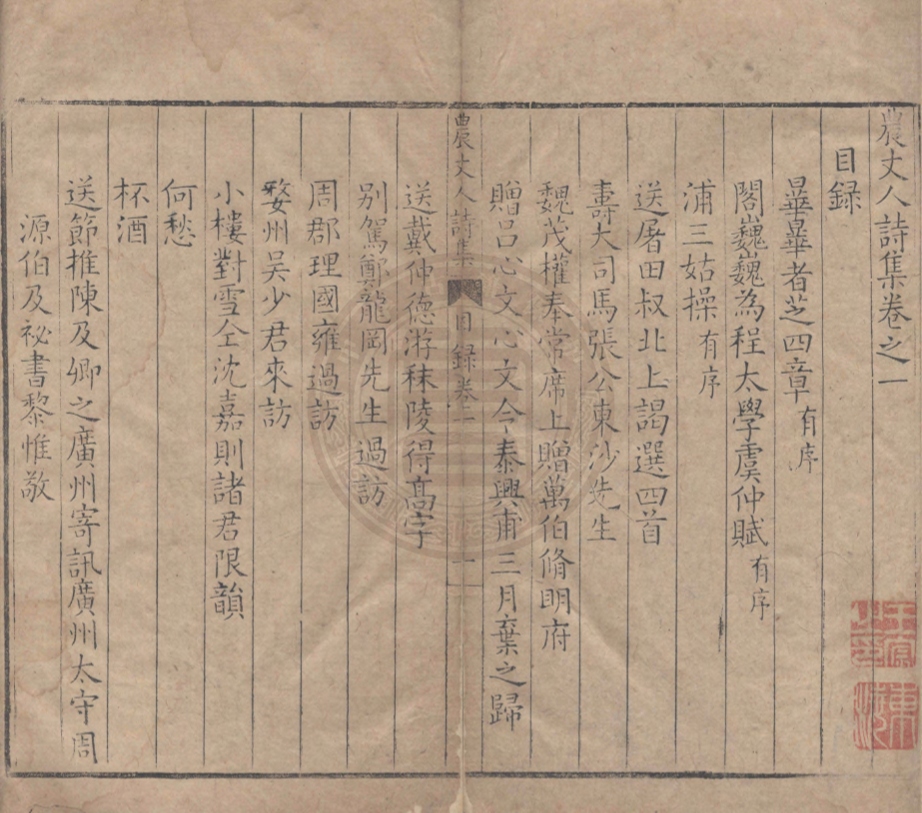 農丈人詩集卷之一
目録
畢畢者芝四章 有序
閣巍巍為程太學虞仲賦 有序
浦三姑操 有序
送屠田叔北上謁選四首
壽大司馬張公東沙先生
魏茂權奉常席上贈萬伯脩明府
贈吕心文心文令泰興甫三月棄之歸
農丈人詩集 目録卷一 一
送戴仲德游秣陵得高字
别駕鄭龍岡先生過訪
周郡理國雍過訪
婺州吴少君來訪
小樓對雪仝沈嘉則諸君限韻
何愁
杯酒
送節推陳及卿之廣州寄訊廣州太守周
源伯及祕書黎惟敬